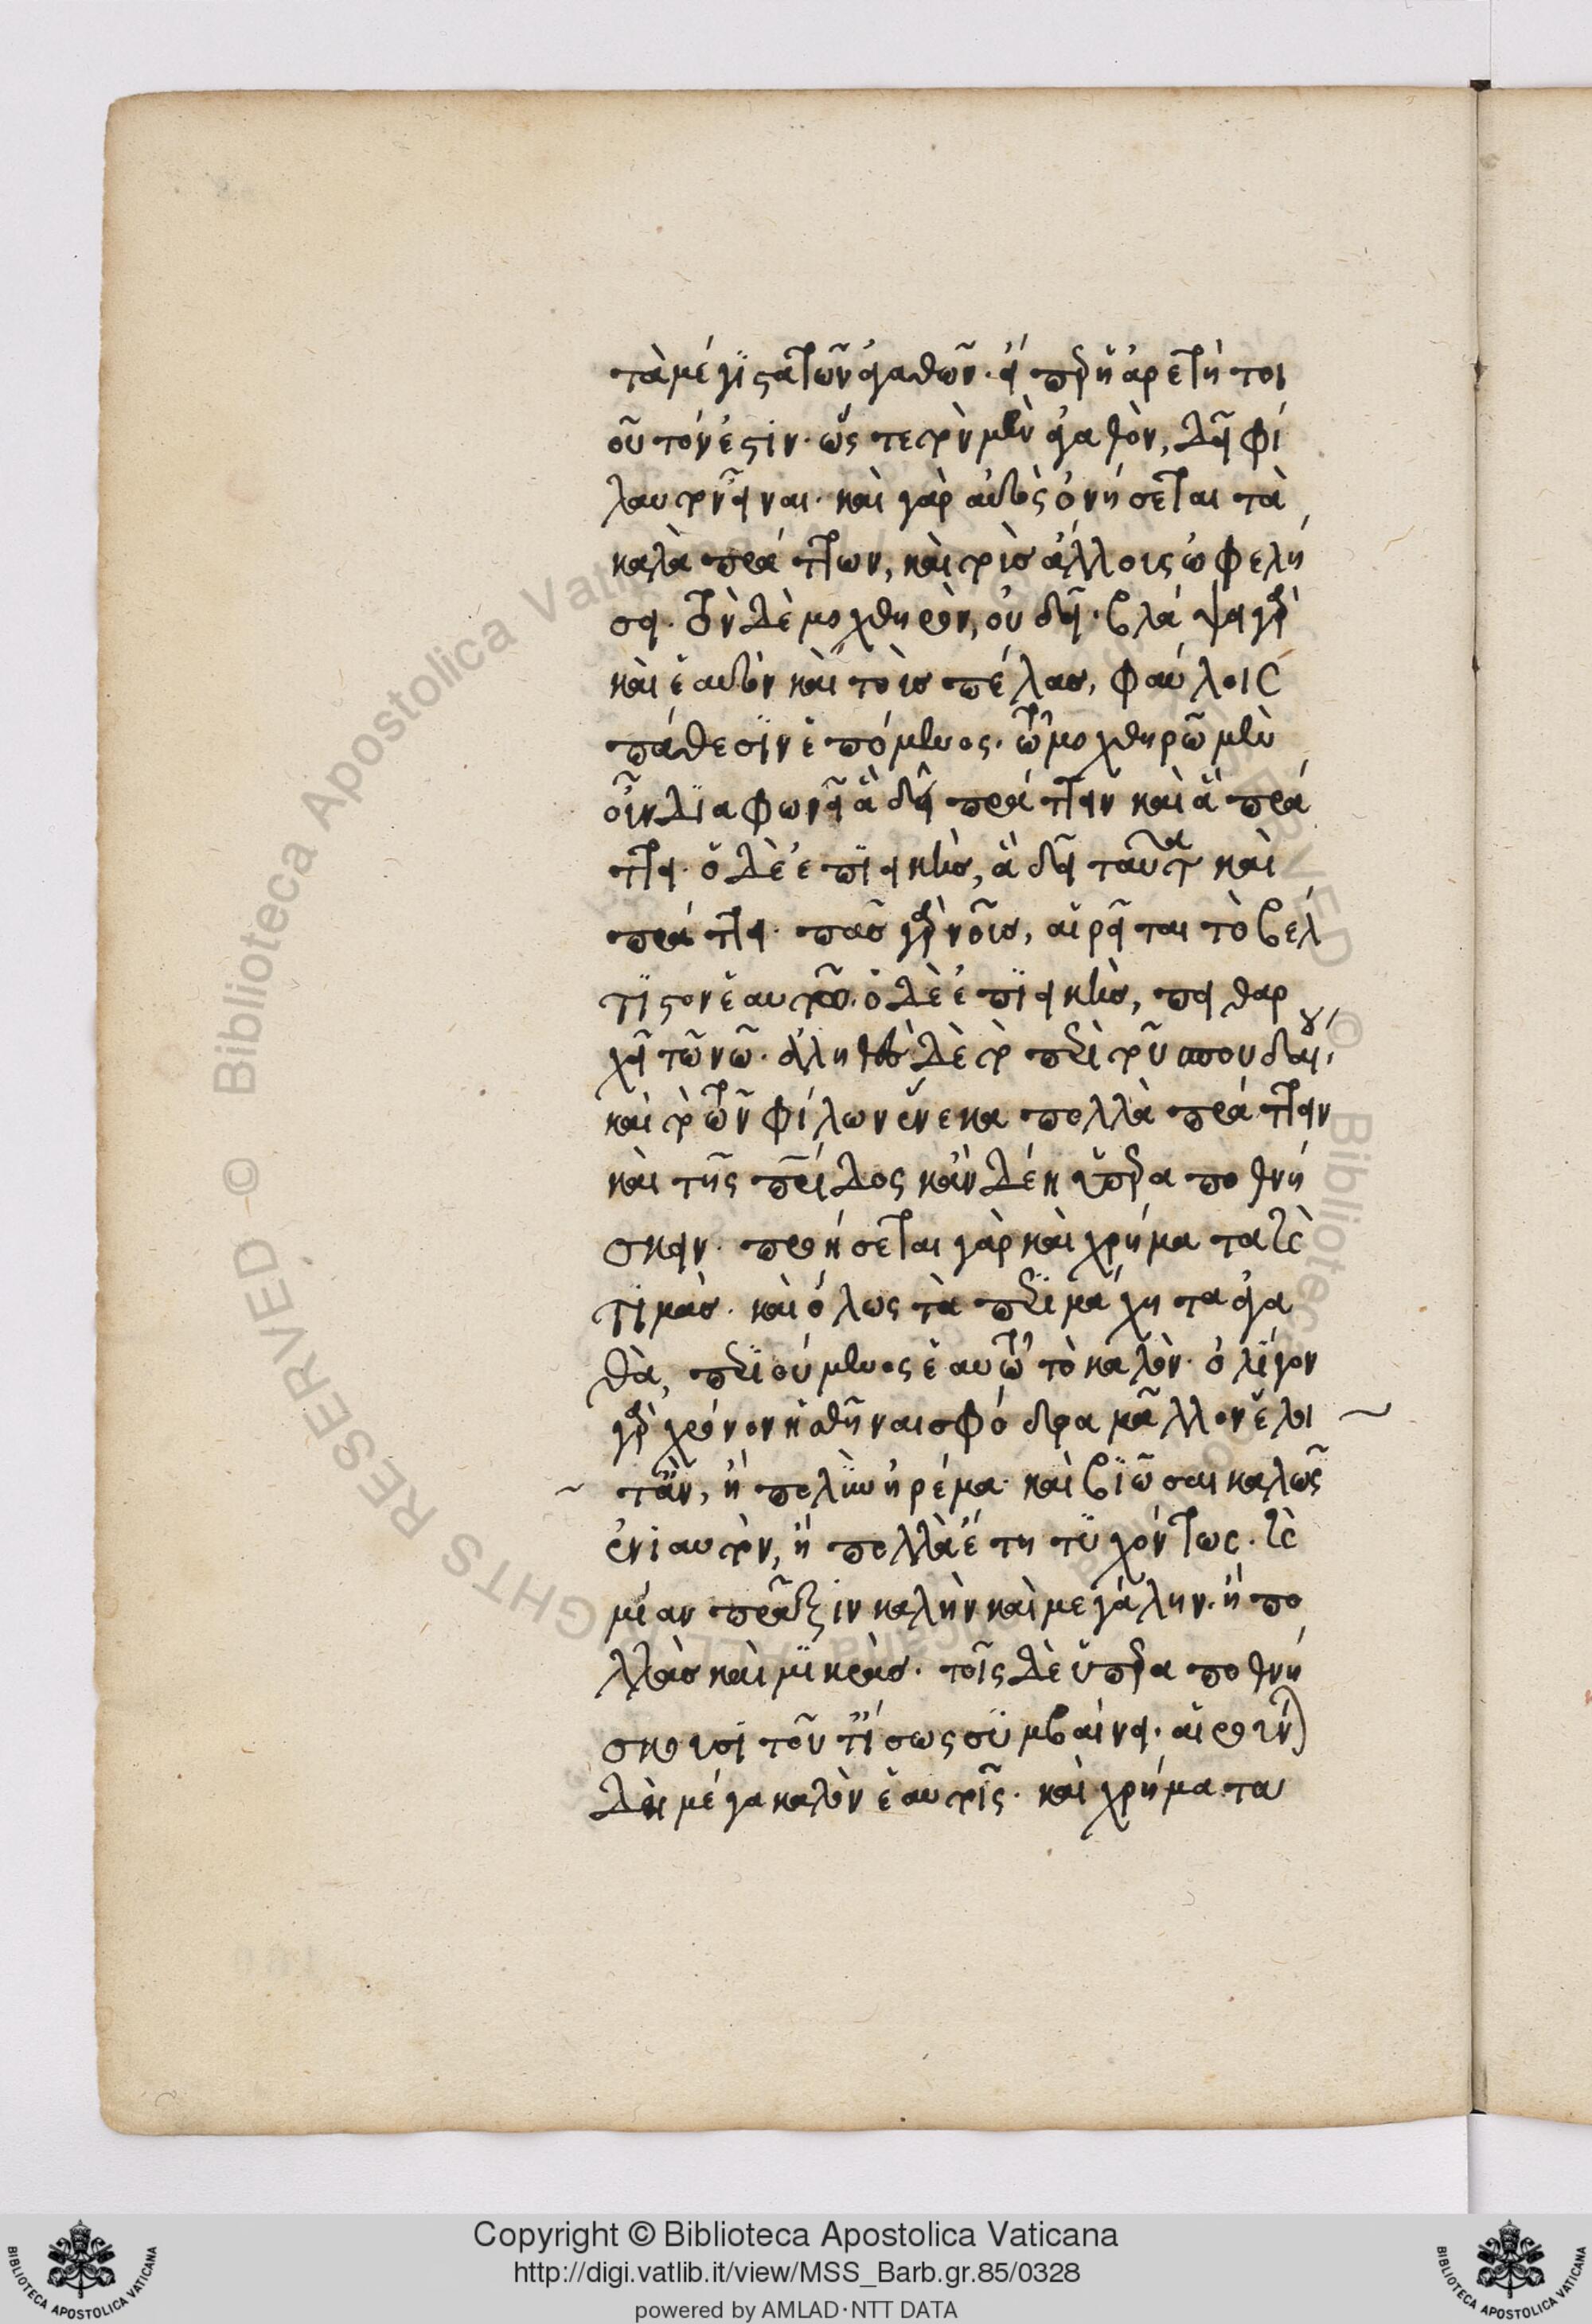 τὰ μέγιστα τῶν ἀγαθῶν. εἴπερ ἡ ἀρετὴ τοι
οῦτόν ἐστιν. ὥστε τὸν μὲν ἀγαθὸν, δεῖ φί
λαυτον εἶναι. καὶ γὰρ αὐτὸς ὀνήσεται τὰ
καλὰ πράττων, καὶ τοὺς ἄλλοις ὠφελή
σει. τὸν δὲ μοχθηρὸν, οὐ δεῖ. βλάψει γὰρ
καὶ ἑαυτὸν καὶ τοὺς πέλας, φαύλοις
πάθεσιν ἑπόμενος. τῷ μοχθηρῷ μὲν
οὖν διαφωνεῖ ἃ δεῖ πράττειν καὶ ἃ πράτ
τει. ὁ δὲ ἐπιεικὴς, ἃ δεῖ ταῦτα καὶ
πράττει. πᾶς γὰρ νοῦς, αἱρεῖται τὸ βέλ
τιστον ἑαυτῷ. ὁ δὲ ἐπιεικὴς, πειθαρ
χεῖ τῷ νῷ. ἀληθὲς δὲ τὸ περὶ τοῦ σπουδαίου,
καὶ τὸ τῶν φίλων ἕνεκα πολλὰ πράττειν
καὶ τῆς πατρίδος κἂν δέῃ ὑπεραποθνή
σκειν. προήσεται γὰρ καὶ χρήματα καὶ
τιμὰς. καὶ ὅλως τὰ περιμάχητα ἀγα
θὰ, περιούμενος ἑαυτῷ τὸ καλὸν. ὀλίγον
γὰρ χρόνον ἡσθῆναι σφόδρα μᾶλλον ἕλοι
τ' ἂν, ἢ πολὺν ἠρέμα. καὶ βιῶσαι καλῶς
ἐνιαυτὸν, ἢ πολλὰ ἔτη τυχόντως. καὶ
μίαν πρᾶξιν καλὴν καὶ μεγάλην. ἢ πο
λλὰς καὶ μικρὰς. τοῖς δὲ ὑπεραποθνή
σκουσι τοῦτ' ἴσως συμβαίνει. αἱροῦνται
δὲ μέγα καλὸν ἑαυτοῖς. καὶ χρήματα
Copyright © Biblioteca Apostolica Vaticana
http://digi.vatlib.it/view/MSS_Barb.gr.85/0328
powered by AMLAD·NTT DATA